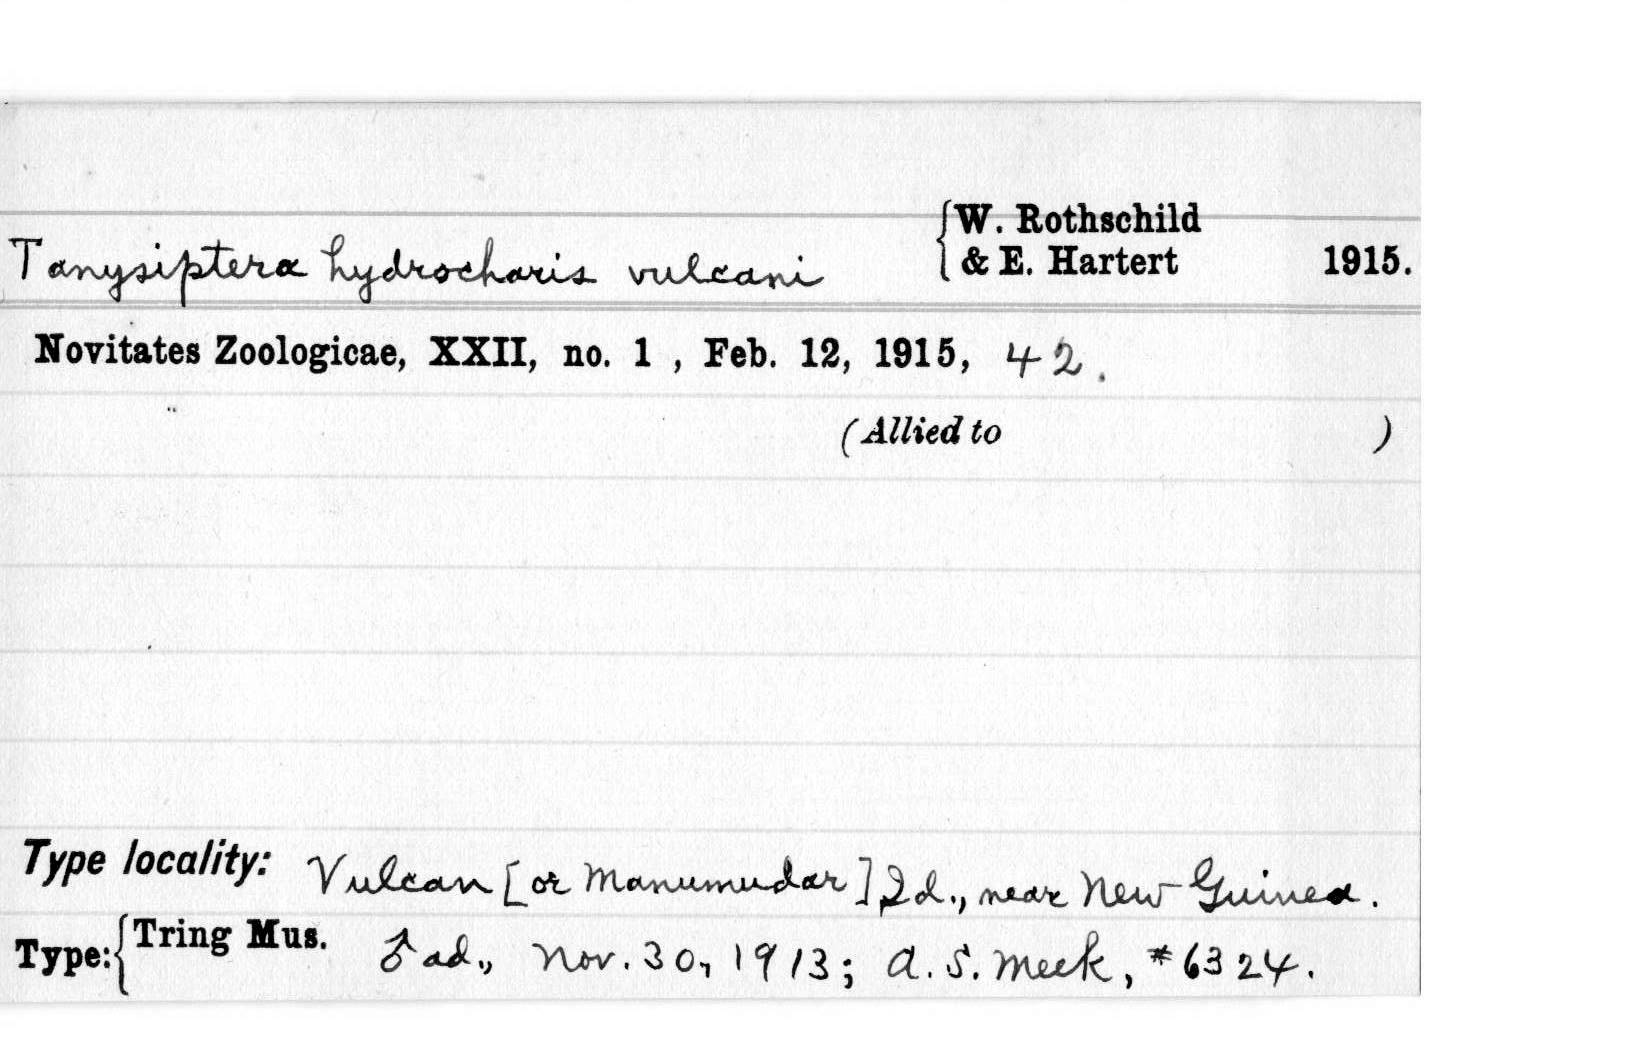 {W. Rothschild
Tanysiptera hydrocharis vulcani { & E. Hartert 1915.
Novitates Zoologicae, XXII, no. 1 , Feb. 12, 1915, 42.
(Allied to )
Type locality: Vulcan [or Manumudar] Id., near New Guinea.
Type: {Tring Mus. ♂ ad., Nov. 30, 1913; A. S. Meek, #6324.